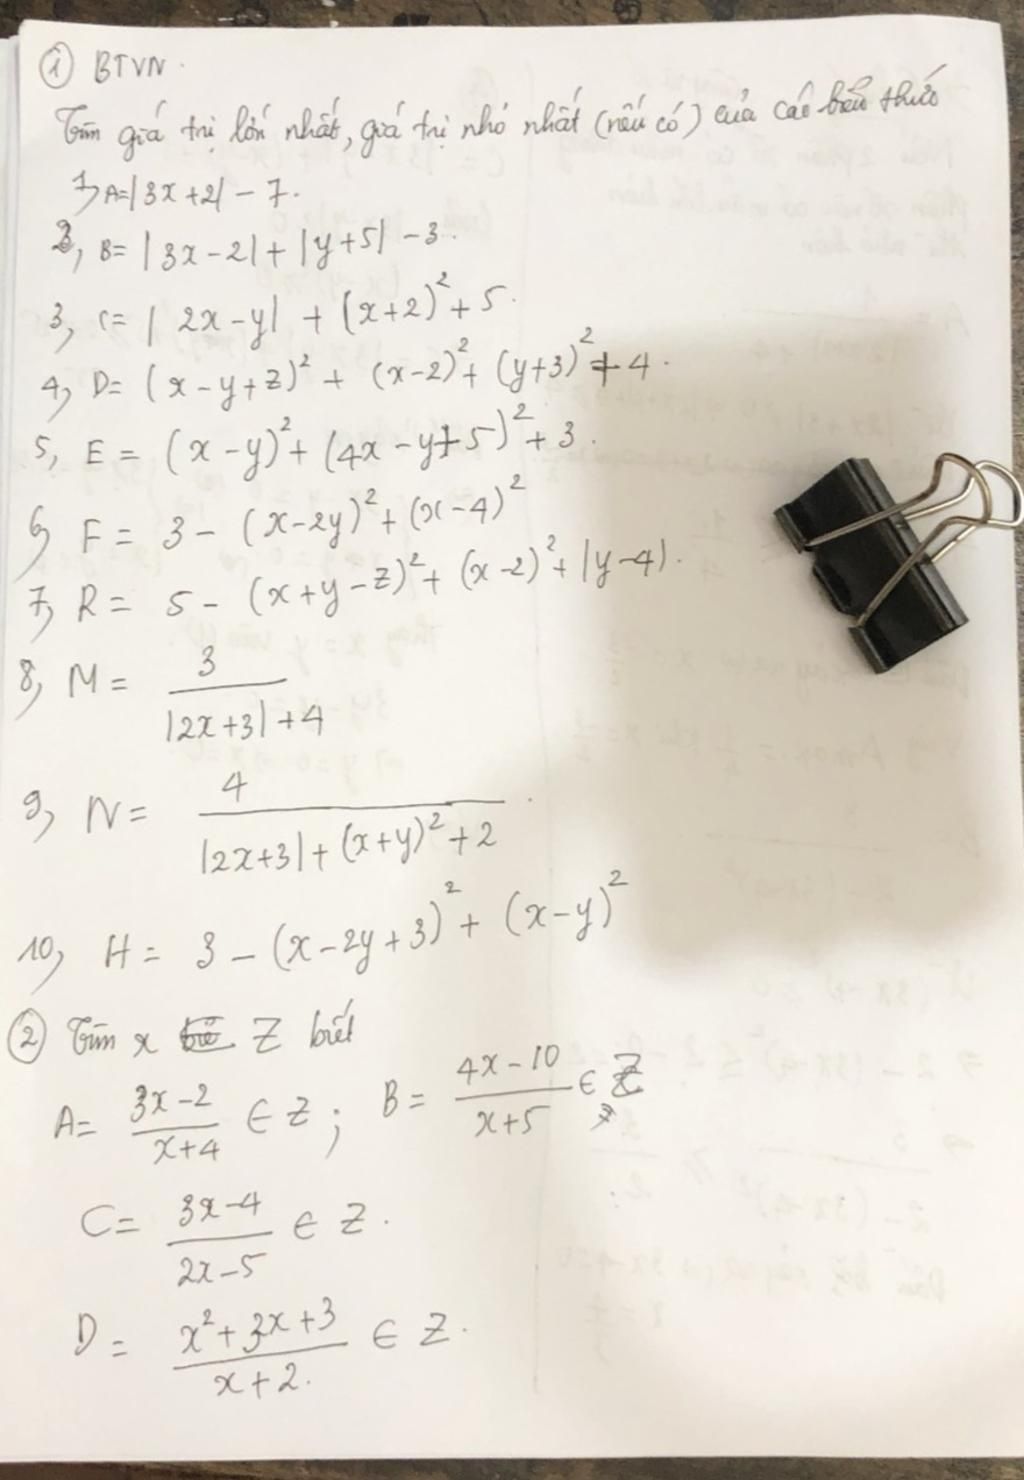 ① BTVN.
Tìm giá trị lớn nhất, giá trị nhỏ nhất (nếu có) của các biểu thức
1, A=|3x+2| - 7.
2, B= |3x-2| + |y+5| - 3.
3, C= |2x-y| + (x+2)² + 5.
4, D= (x-y+z)² + (x-2)² + (y+3)² + 4.
5, E = (x-y)² + (4x-y+5)² + 3.
6, F = 3 - (x-2y)² + (x-4)²
7, R = 5 - (x+y-z)² + (x-2)² + |y-4|.
8, M = 3 / (|2x+3| + 4)
9, N = 4 / (|2x+3| + (x+y)² + 2)
10, H = 3 - (x-2y+3)² + (x-y)²
② Tìm x Z biết
A= (3x-2)/(x+4) ∈ Z; B= (4x-10)/(x+5) ∈ Z
C= (3x-4)/(2x-5) ∈ Z.
D= (x²+3x+3)/(x+2) ∈ Z.